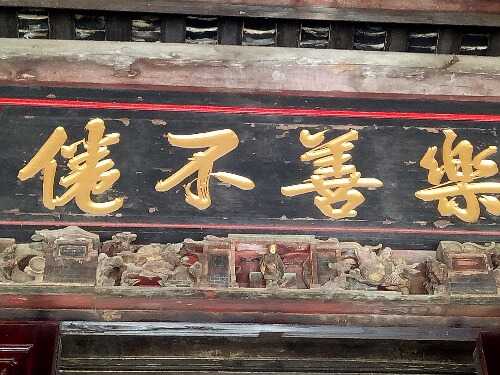 樂善不倦